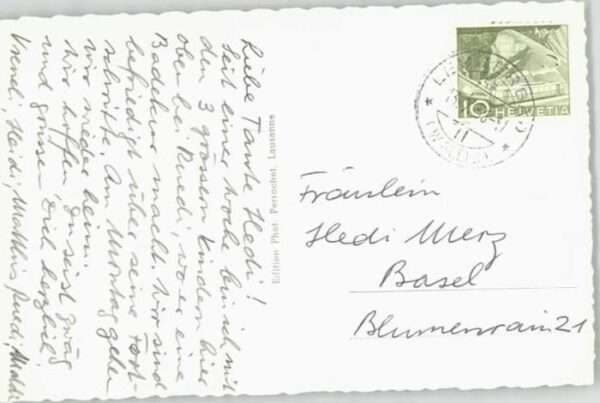 Liebe Tante Hedi!
Seit einer Woche bin ich mit
den 3 grössern Kindern hier
oben bei Ruedi, wo er eine
Badekur macht. Wir sind
befriedigt über seine Fort-
schritte. Am Montag gehen
wir wieder heim.
Wir hoffen, Du seist zwäg
und grüssen Dich herzlich,
Vreneli, Heidi, Matthis, Ruedi,
Edition Phot. Perrochet, Lausanne
10 HELVETIA
Fräulein
Hedi Merz
Basel
Blumenrain 21